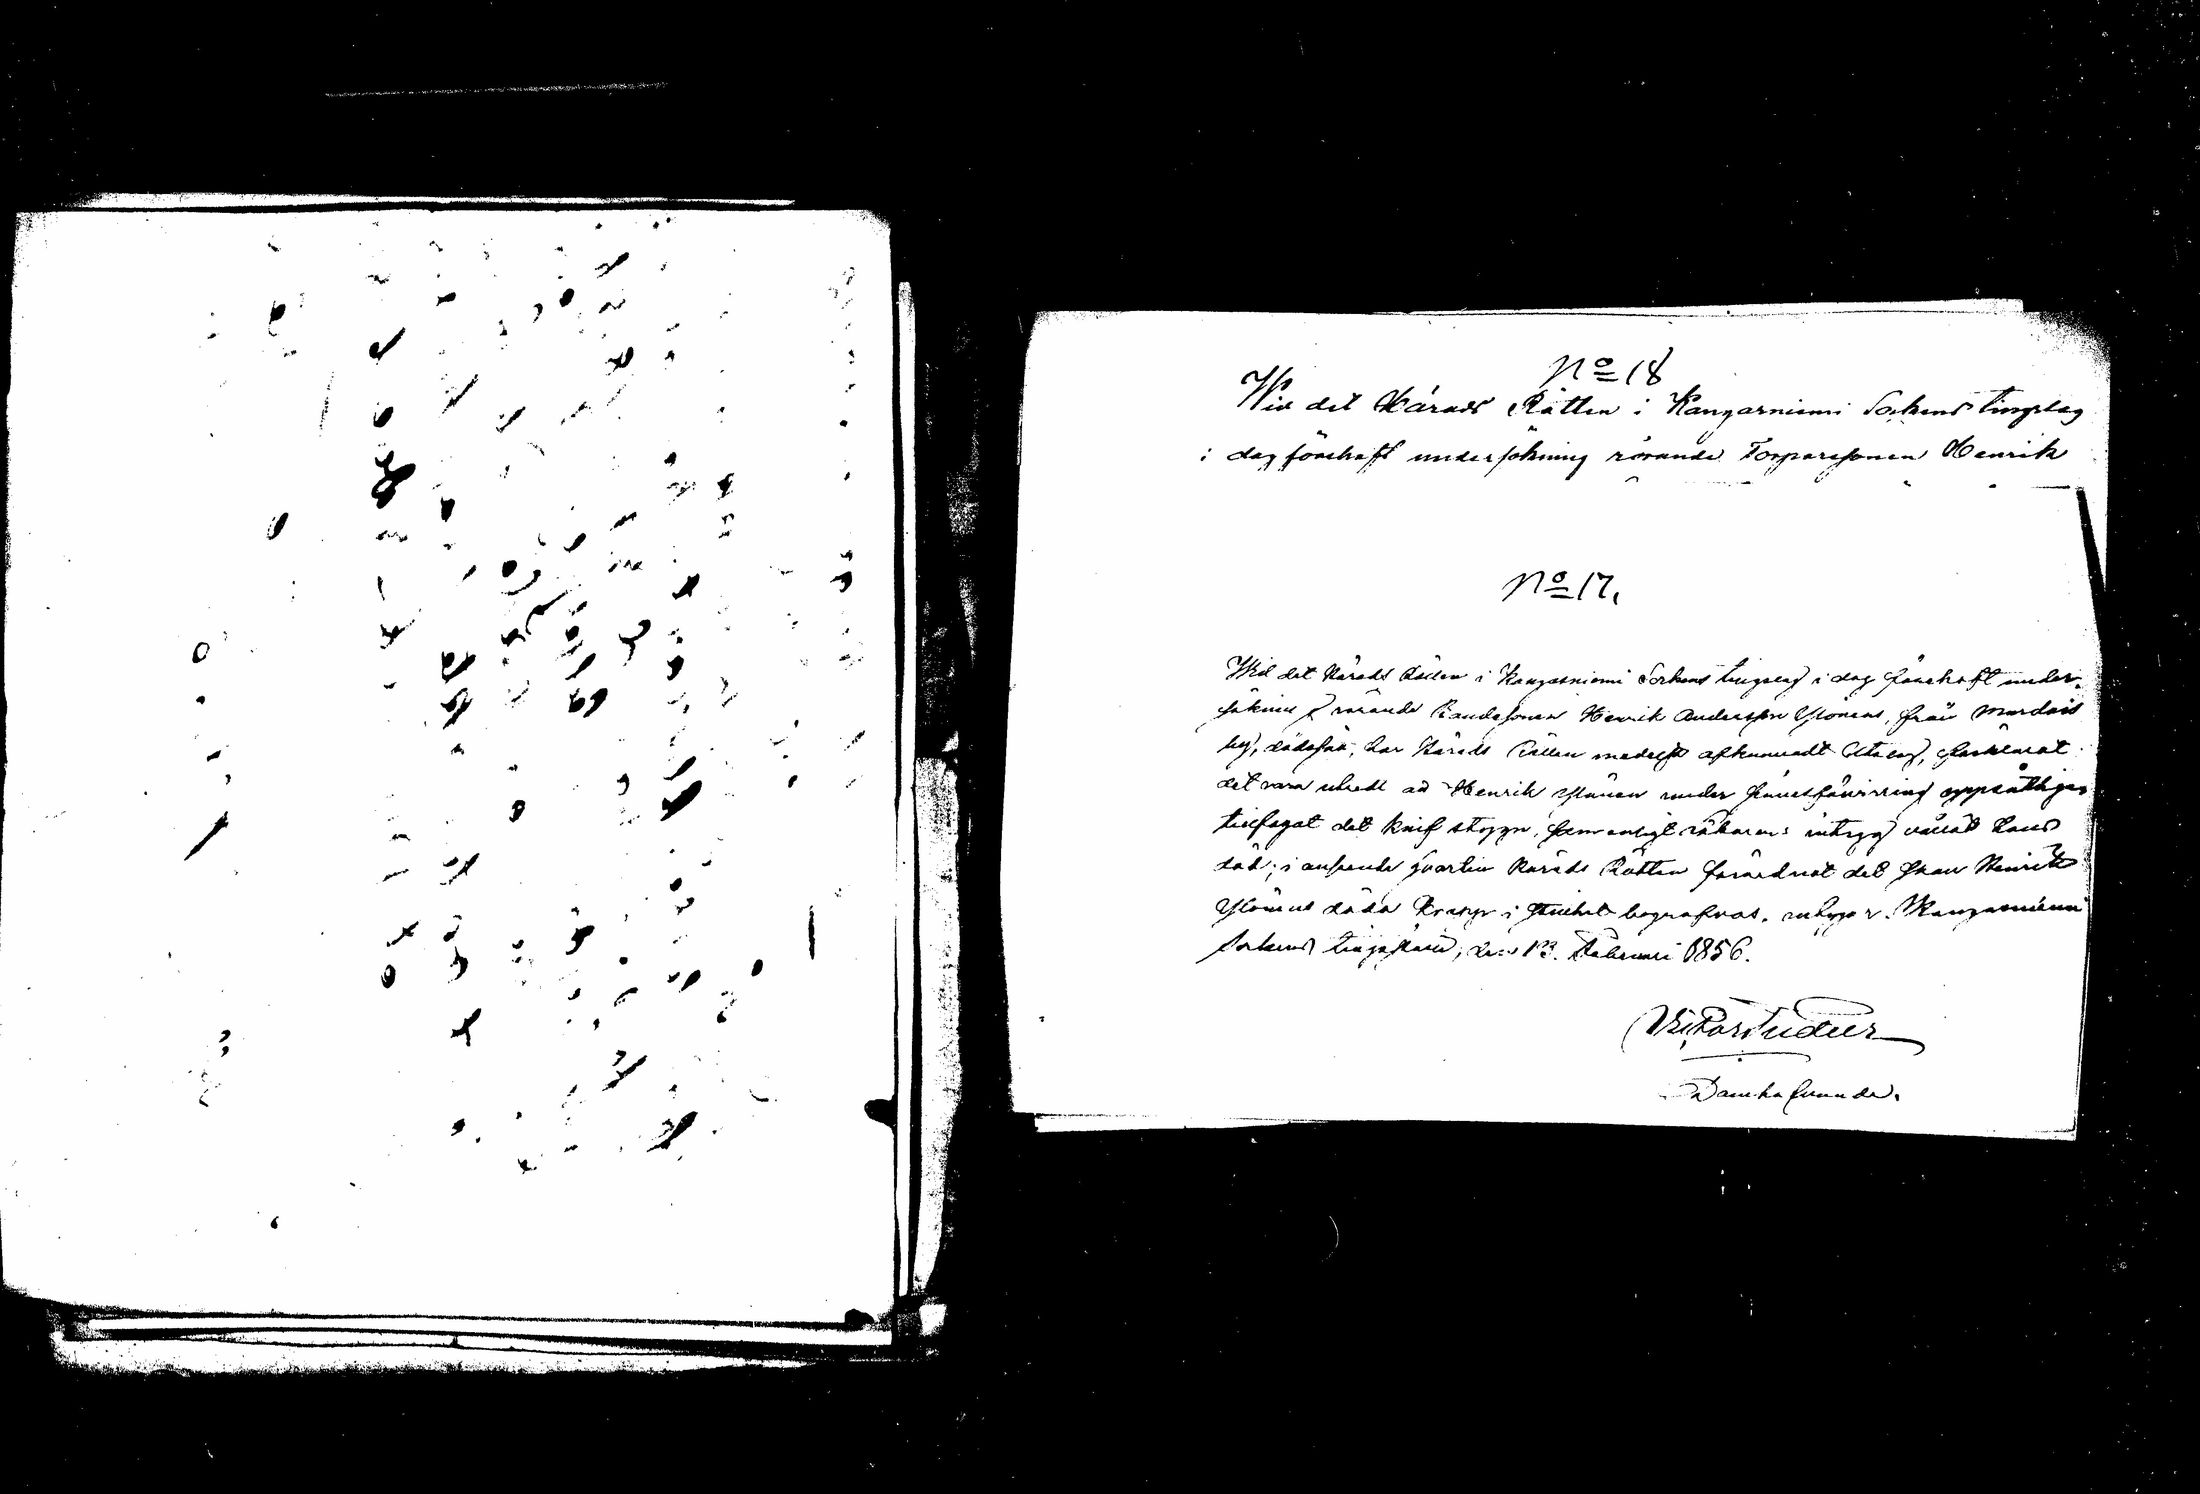 No 18
Wid det Härads Rätten i Kangasniemi Sockens tingslag
i dag förehaft undersökning rörande Torparesonen Henrik
No 17.
Wid det Härads Rätten i Kangasniemi Sockens tingslag i dag förehaft under-
sökning rörande Bondesonen Henrik Andersson Ylönens, från
by, dödssätt, har Härads Rätten medelst afkunnadt Utslag, förklarat
det vara utredt att Henrik Ylönen under sinnesförvirring uppsåtligen
tillfogat det knif stygn, som enligt läkarens intyg vållat hans
död; i anseende hvartill Härads Rätten förordnat det skall Henrik
Ylönens döda kropp i stillhet begrafvas, intygar. Kangasniemi
Sockens tingsställe, den 13. Februari 1856.
Domhafvande.